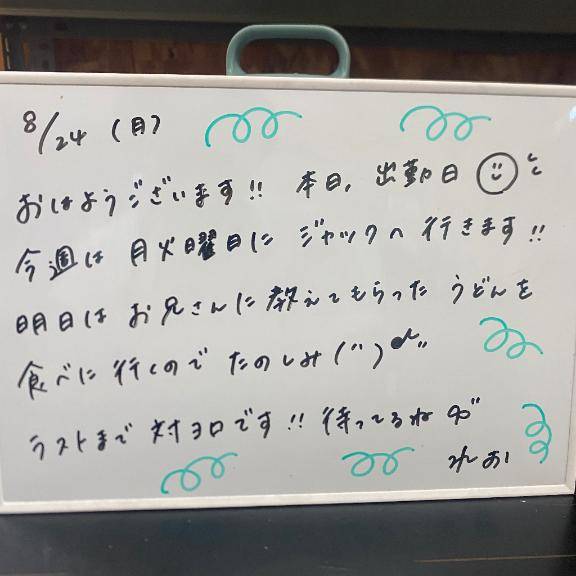 8/24 (月)
おはようございます!! 本日、出勤日
今週は月火曜日にジャックへ行きます!!
明日はお兄さんに教えてもらったうどんを
食べに行くのでたのしみ(¨)♪
ラストまで対ヨロです!! 待ってるね
れお